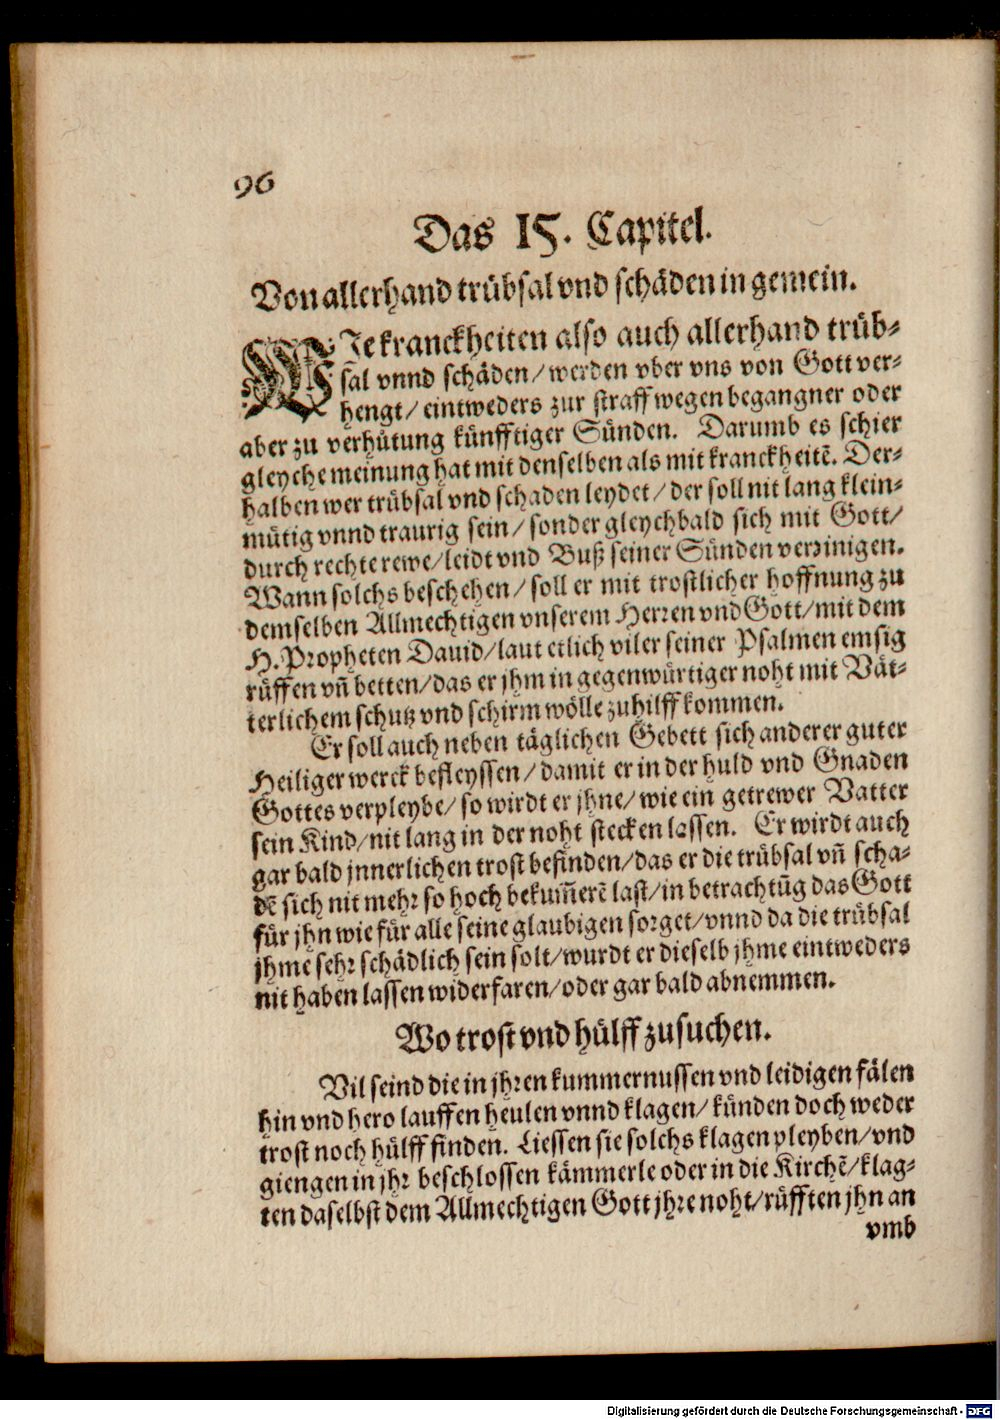 96
Das 15. Capitel.
Von allerhand trübsal vnd schäden in gemein.
WJe kranckheiten also auch allerhand trüb-
sal vnnd schäden/ werden vber vns von Gott ver-
hengt/ eintweders zur straff wegen begangner oder
aber zu verhütung künfftiger Sünden. Darumb es schier
gleyche meinung hat mit denselben als mit kranckheitẽ. Der-
halben wer trübsal vnd schaden leydet/ der soll nit lang klein-
mütig vnnd traurig sein/ sonder gleychbald sich mit Gott/
durch rechte rewe/ leidt vnd Buß seiner Sünden vereinigen.
Wann solchs beschehen/ soll er mit trostlicher hoffnung zu
demselben Allmechtigen vnserem Herren vnd Gott/ mit dem
H. Propheten Dauid/ laut etlich viler seiner Psalmen emsig
rüffen vñ betten/ das er jhm in gegenwürtiger noht mit Vät-
terlichem schutz vnd schirm wölle zuhilff kommen.
Er soll auch neben täglichen Gebett sich anderer guter
Heiliger werck befleyssen/ damit er in der huld vnd Gnaden
Gottes verpleybe/ so wirdt er jhne/ wie ein getrewer Vatter
sein Kind/ nit lang in der noht stecken lassen. Er wirdt auch
gar bald jnnerlichen trost befinden/ das er die trübsal vñ scha-
dẽ sich nit mehr so hoch bekum̃erẽ last/ in betrachtũg das Gott
für jhn wie für alle seine glaubigen sorget/ vnnd da die trübsal
jhme sehr schädlich sein solt/ wurdt er dieselb jhme eintweders
nit haben lassen widerfaren/ oder gar bald abnemmen.
Wo trost vnd hülff zusuchen.
Vil seind die in jhren kummernussen vnd leidigen fälen
hin vnd hero lauffen heulen vnnd klagen/ künden doch weder
trost noch hülff finden. Liessen sie solchs klagen pleyben/ vnd
giengen in jhr beschlossen kämmerle oder in die Kirchẽ/ klag-
ten daselbst dem Allmechtigen Gott jhre noht/ rüfften jhn an
vmb
Digitalisierung gefördert durch die Deutsche Forschungsgemeinschaft - DFG